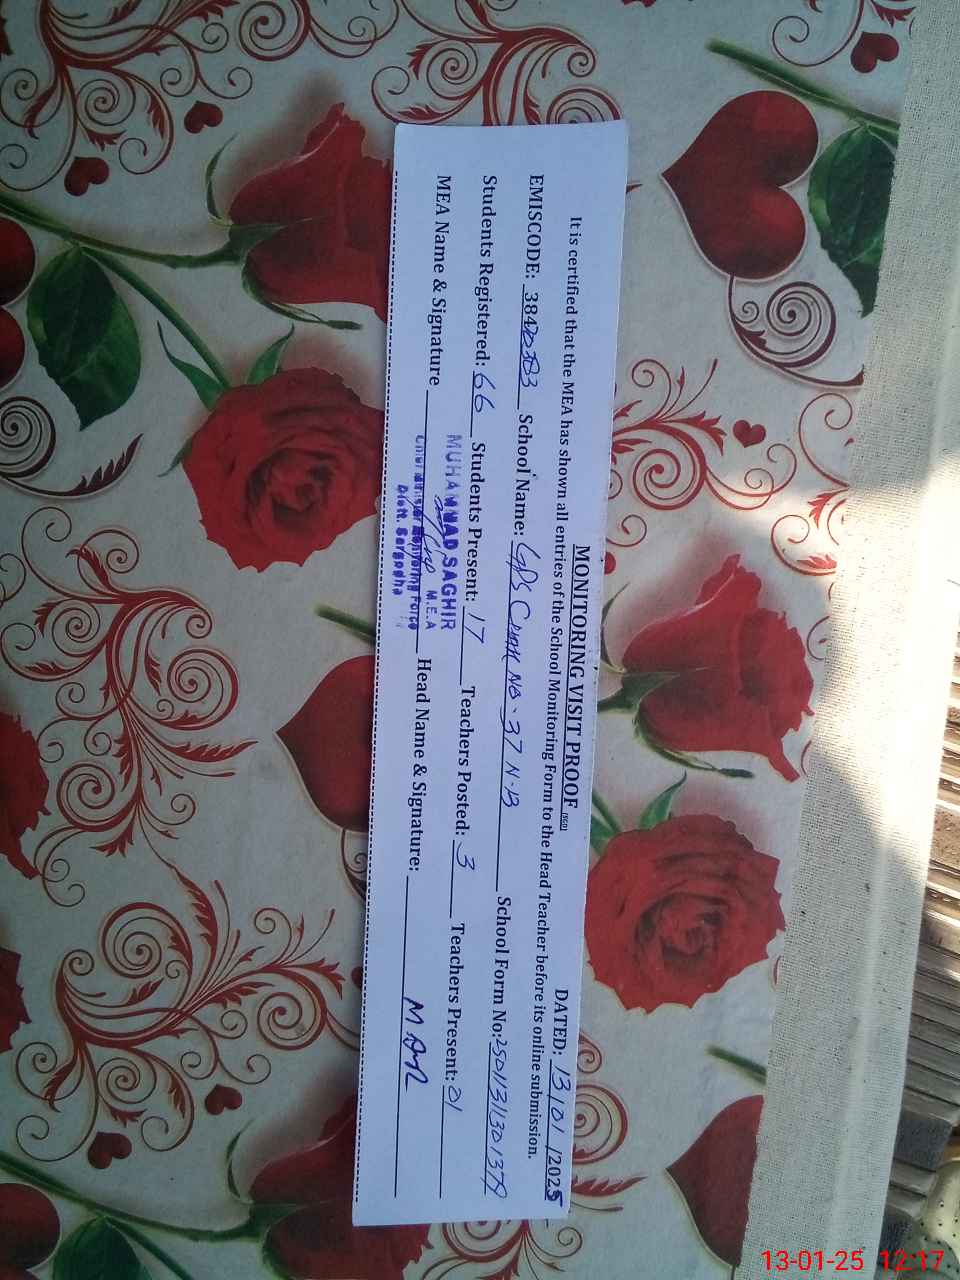 MONITORING VISIT PROOF (SGD)
DATED: 13/01/2025
It is certified that the MEA has shown all entries of the School Monitoring Form to the Head Teacher before its online submission.
EMISCODE: School Name: GPS Chak No-37 N.B School Form No:
Students Registered: 66 Students Present: 17 Teachers Posted: 3 Teachers Present: 01
MEA Name & Signature Head Name & Signature:
MUHAMMAD SAGHIR
M.E.A
Chief Minister Monitoring Force
Distt. Sargodha
13-01-25 12:17